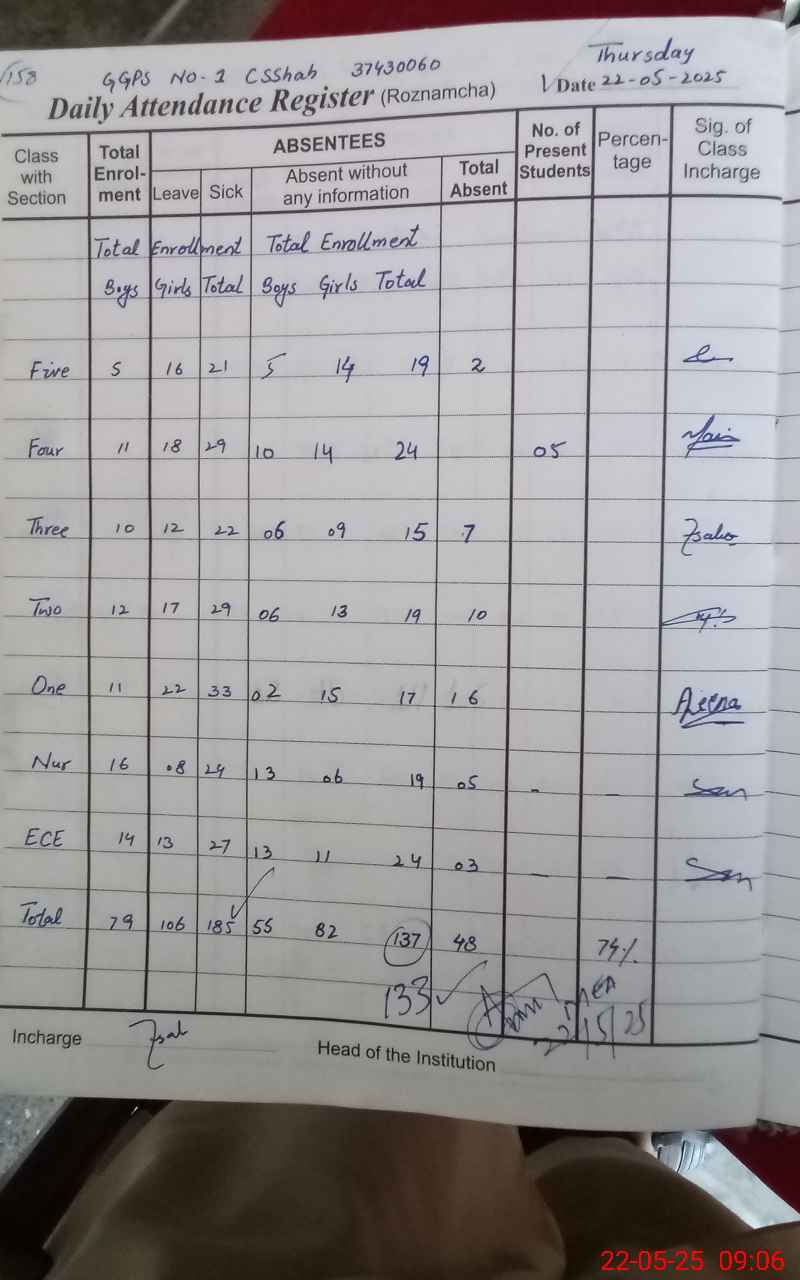 158 GGPS NO-1 CSShah 37430060 Thursday
Daily Attendance Register (Roznamcha) Date 22-05-2025
Class with Section Total Enrol-ment ABSENTEES No. of Present Students Percen-tage Sig. of Class Incharge
Leave Sick Absent without any information Total Absent
Total Enrollment Total Enrollment
Boys Girls Total Boys Girls Total
Five 5 16 21 5 14 19 2
Four 11 18 29 10 14 24 05
Three 10 12 22 06 09 15 7
Two 12 17 29 06 13 19 10
One 11 22 33 02 15 17 16
Nur 16 08 24 13 06 19 05 - -
ECE 14 13 27 13 11 24 03 - -
Total 79 106 185 55 82 137 48 74%
133
MEA
22/5/25
Incharge
Head of the Institution
22-05-25 09:06